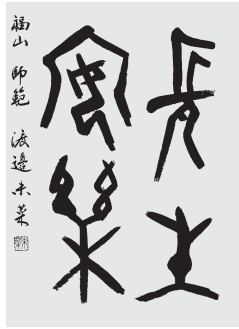 長生
安樂
福山 師範 渡邊未菜